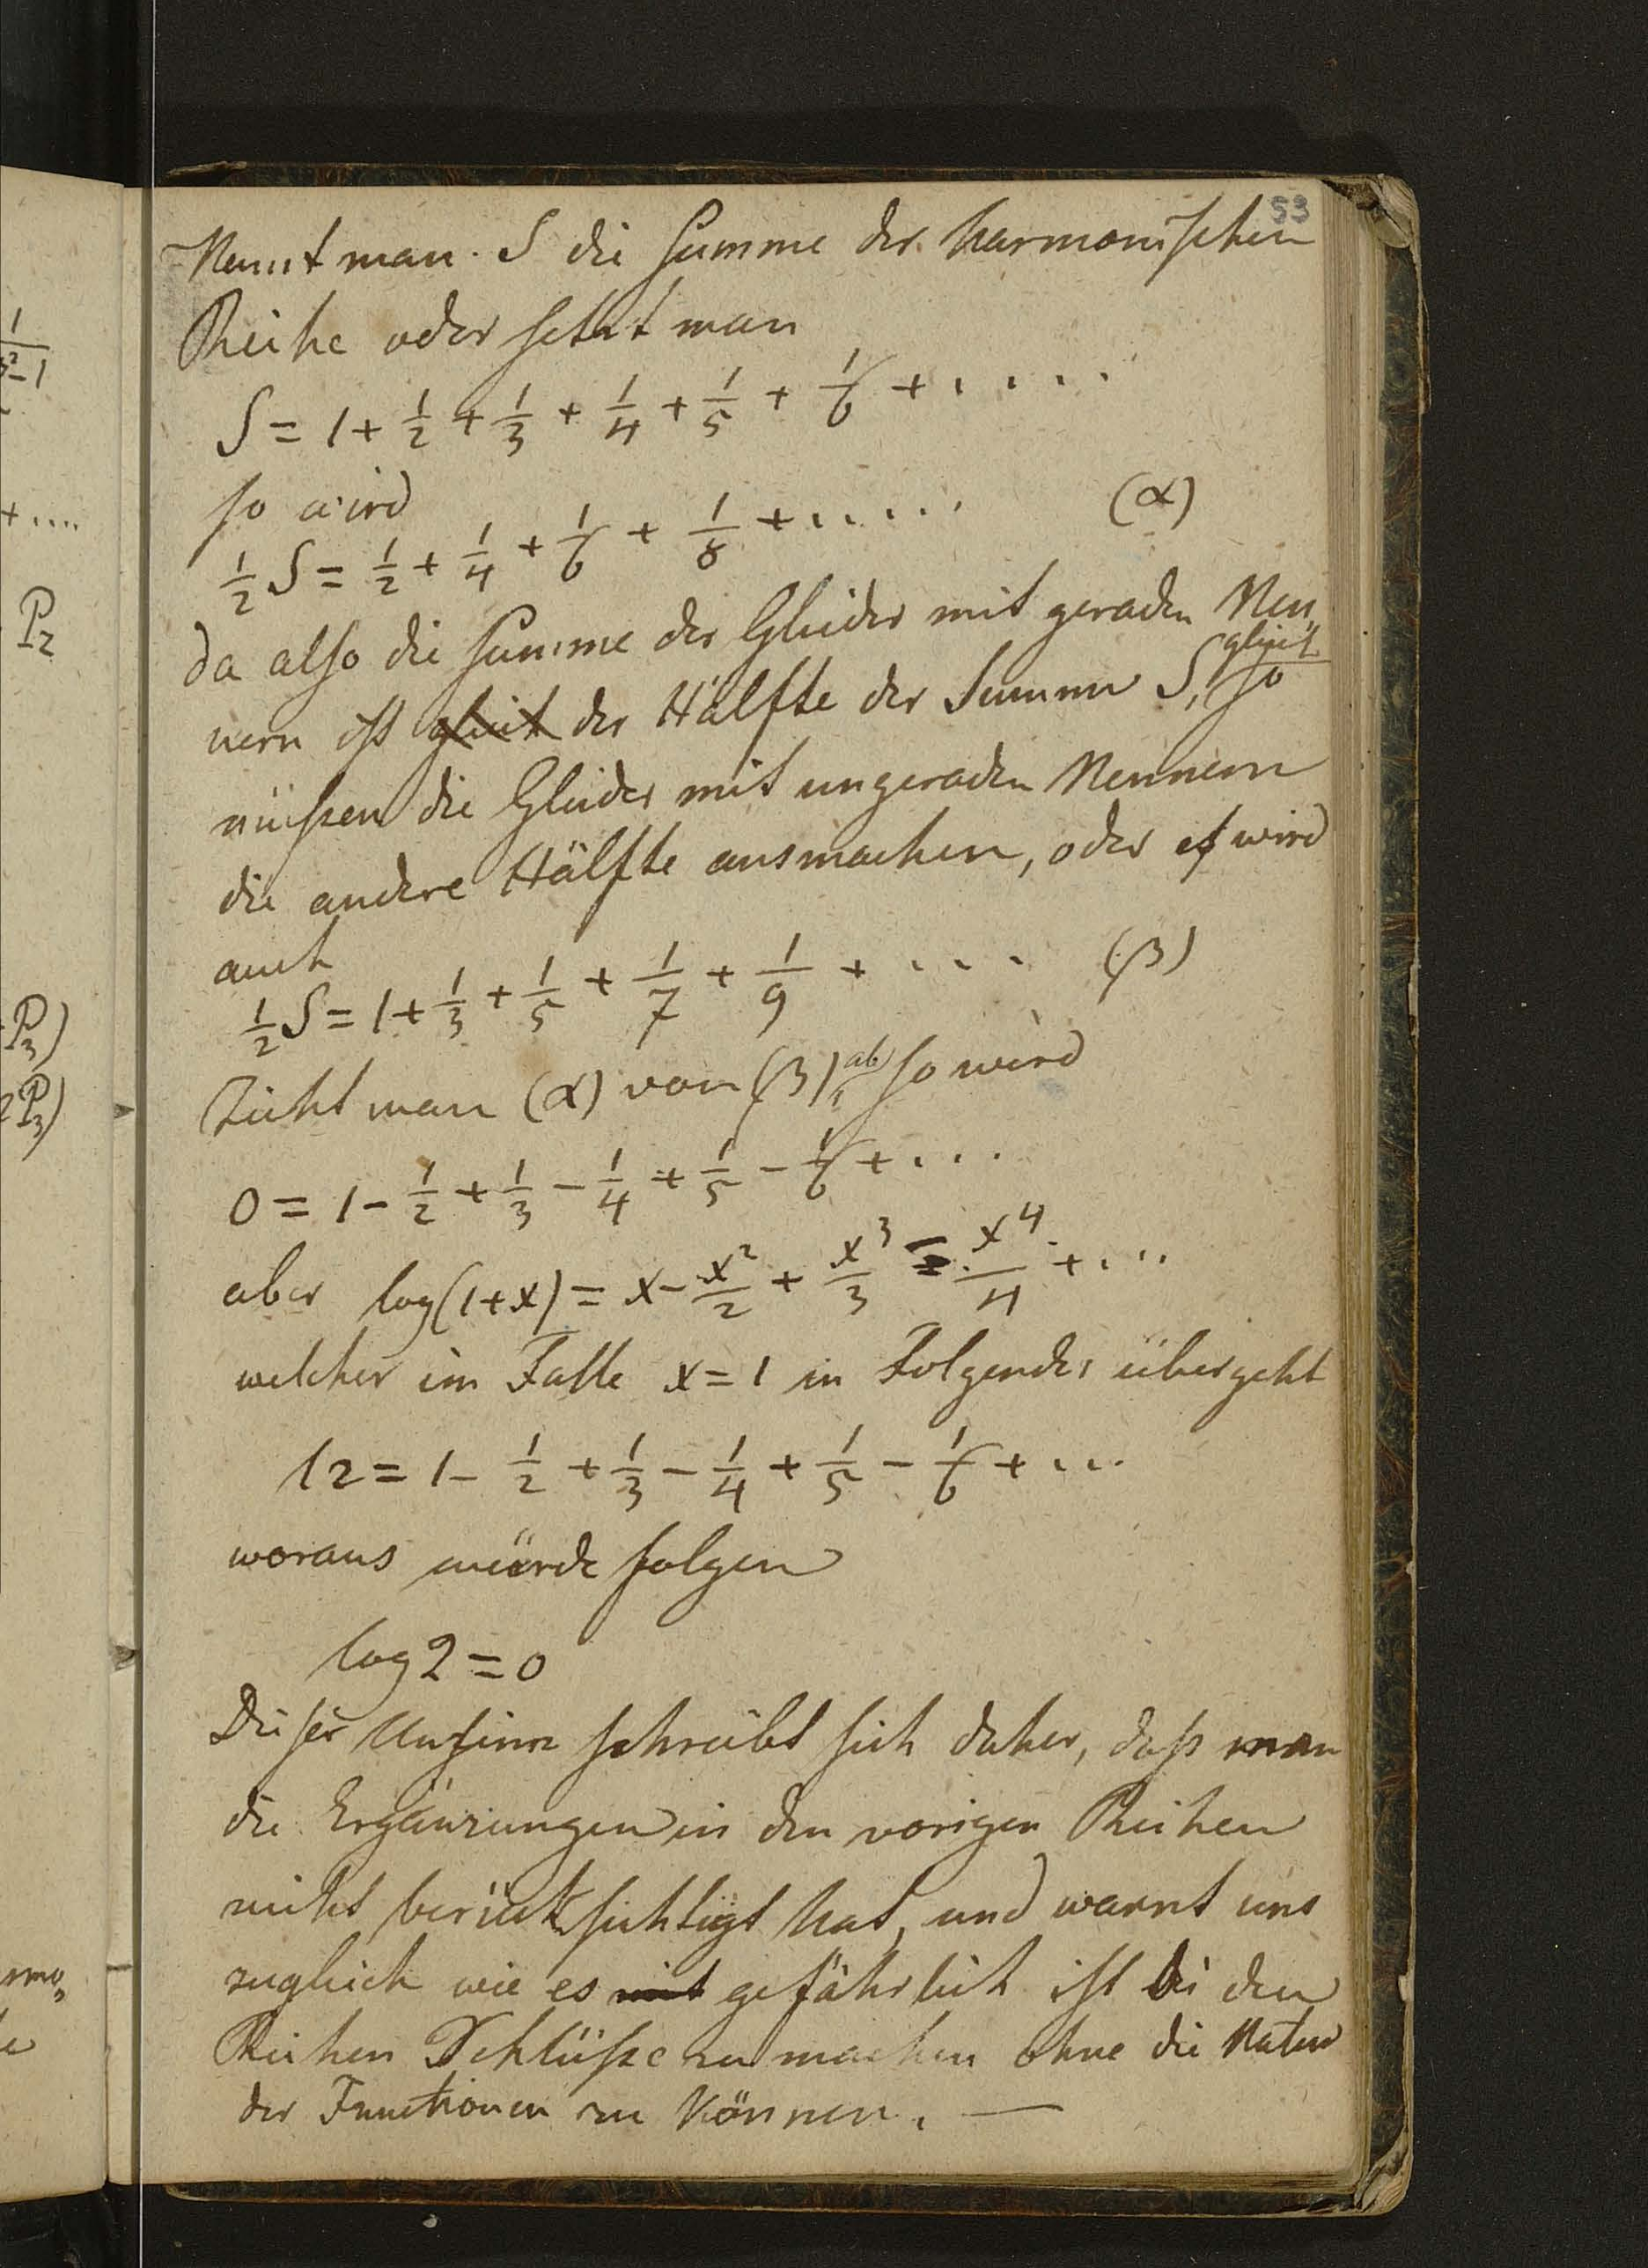 53
Nennt man S die Summe der harmonischen
Reihe oder setzt man
S = 1 + 1/2 + 1/3 + 1/4 + 1/5 + 1/6 + .....
so wird
1/2 S = 1/2 + 1/4 + 1/6 + 1/8 + ...... (α)
da also die Summe der Glieder mit geraden Nen„
nern ist gleich der Hälfte der Summe S, gleich so
müßen die Glieder mit ungeraden Nennern
die andere Hälfte ausmachen, oder es wird
auch
1/2 S = 1 + 1/3 + 1/5 + 1/7 + 1/9 + .... (β)
Zieht man (α) von (β) ab, so wird
0 = 1 - 1/2 + 1/3 - 1/4 + 1/5 - 1/6 + ....
aber log(1+x) = x - x²/2 + x³/3 - x⁴/4 + ....
welcher im Falle x = 1 in Folgendes übergeht
l2 = 1 - 1/2 + 1/3 - 1/4 + 1/5 - 1/6 + ...
woraus würde folgen
log 2 = 0
Dieser Unsinn schreibt sich daher, daß man
die Ergänzungen in den vorigen Reihen
nicht berücksichtigt hat, und warnt uns
zugleich wie es mit gefährlich ist bei den
Reihen Schlüße zu machen ohne die Natur
der Functionen zu können. —
1
²-1
+ ....
P₂
P₃)
2P₃)